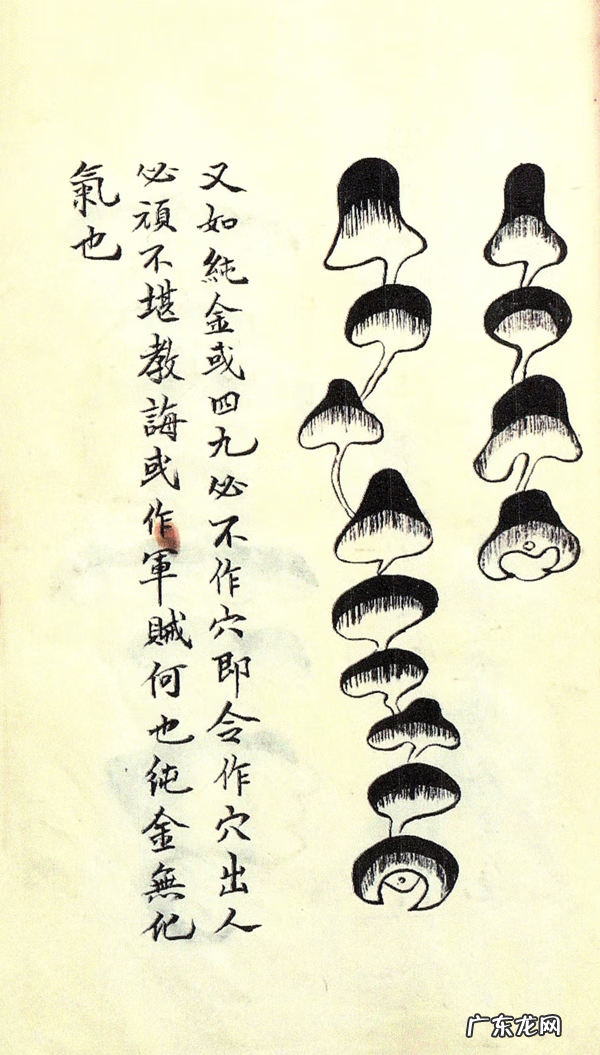 又如純金或四九必不作穴即令作穴出人
必頑不堪教誨或作軍賊何也純金無化
氣也
广东龙网